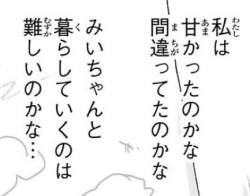 私は
甘かったのかな
間違ってたのかな
みいちゃんと
暮らしていくのは
難しいのかな…